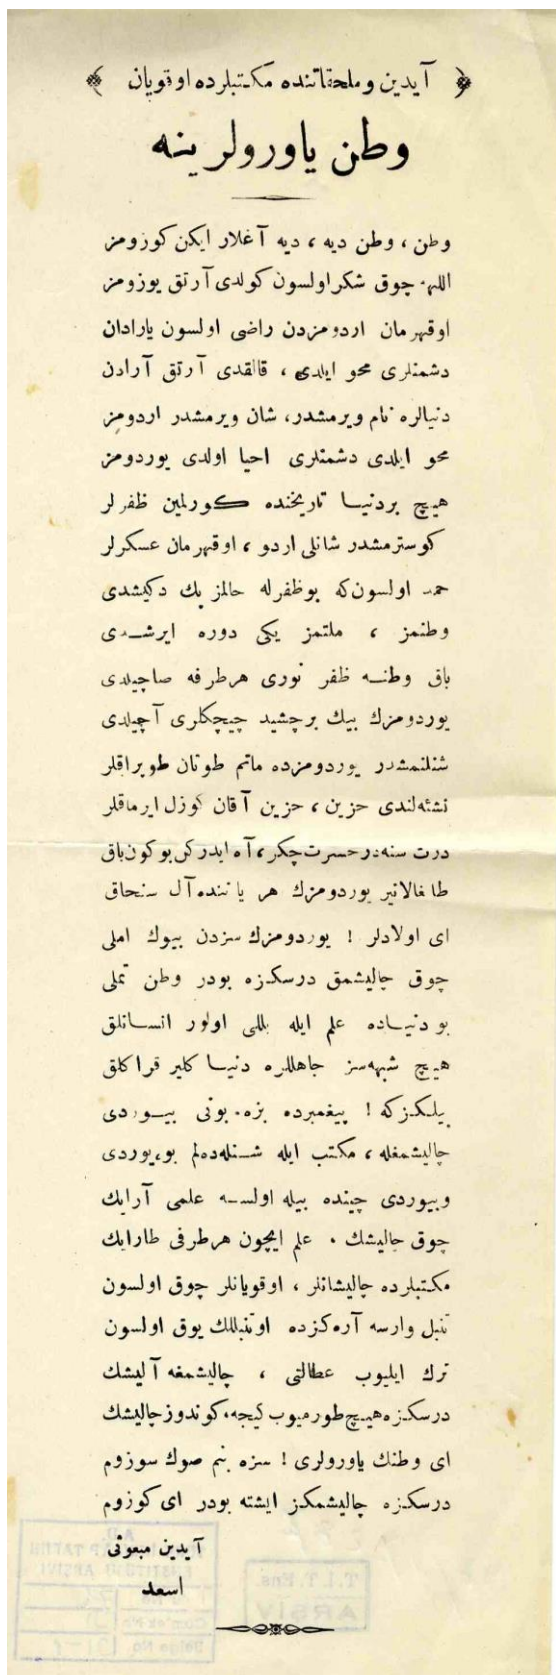 آیدین و ملحقاتنده مکتبلرده اوقویان
وطن یاورولرینه
وطن ، وطن دیه ، دیه آغلار ایکن کوزومز
اللهه چوق شکر اولسون کولدی آرتق یوزومز
اوقهرمان اردومزدن راضی اولسون یارادان
دشمنلری محو ایلدی ، قالقدی آرتق آرادن
دنیالره نام ویرمشدر، شان ویرمشدر اردومز
محو ایلدی دشمنلری احیا اولدی یوردومز
هیچ بردنیا تاریخنده کورلمین ظفرلر
کوسترمشدر شانلی اردو ، اوقهرمان عسکرلر
حمد اولسون که بوظفرله حالمز پك دکیشدی
وطنمز ، ملتمز یکی دوره ایرشدی
باق وطنه ظفر نوری هرطرفه صاچیلدی
یوردومزك بیك برچشید چیچکلری آچیلدی
شنلنمشدر یوردومزده ماتم طوتان طوپراقلر
نشئه‌لندی حزین ، حزین آقان کوزل ایرماقلر
درت سنه‌در حسرت چکر، آه ایدرکن بوکون باق
طالغالانیر یوردومزك هر یاننده آل سنجاق
ای اولادلر ! یوردومزك سزدن بیوك املی
چوق چالیشمق درسکزه بودر وطن تملی
بو دنیاده علم ایله بللی اولور انسانلق
هیچ شبهه‌سز جاهللره دنیا کلیر قراکلق
بیلکزکه ! پیغمبرده بزه بونی بیوردی
چالیشمغله ، مکتب ایله شنله‌ده‌لم بویوردی
وبیوردی چینده بیله اولسه علمی آرایك
چوق چالیشك . علم ایچون هرطرفی طارایك
مکتبلرده چالیشانلر ، اوقویانلر چوق اولسون
تنبل وارسه آره‌کزده اوتنبللك یوق اولسون
ترك ایلیوب عطالتی ، چالیشمغه آلیشك
درسکزه هیچ طورمیوب کیجه، کوندوز چالیشك
ای وطنك یاورولری ! سزه بنم صوك سوزوم
درسکزه چالیشمکز ایشته بودر ای کوزوم
آیدین مبعوثی
اسعد
T.I.T. Ens.
ARŞİV